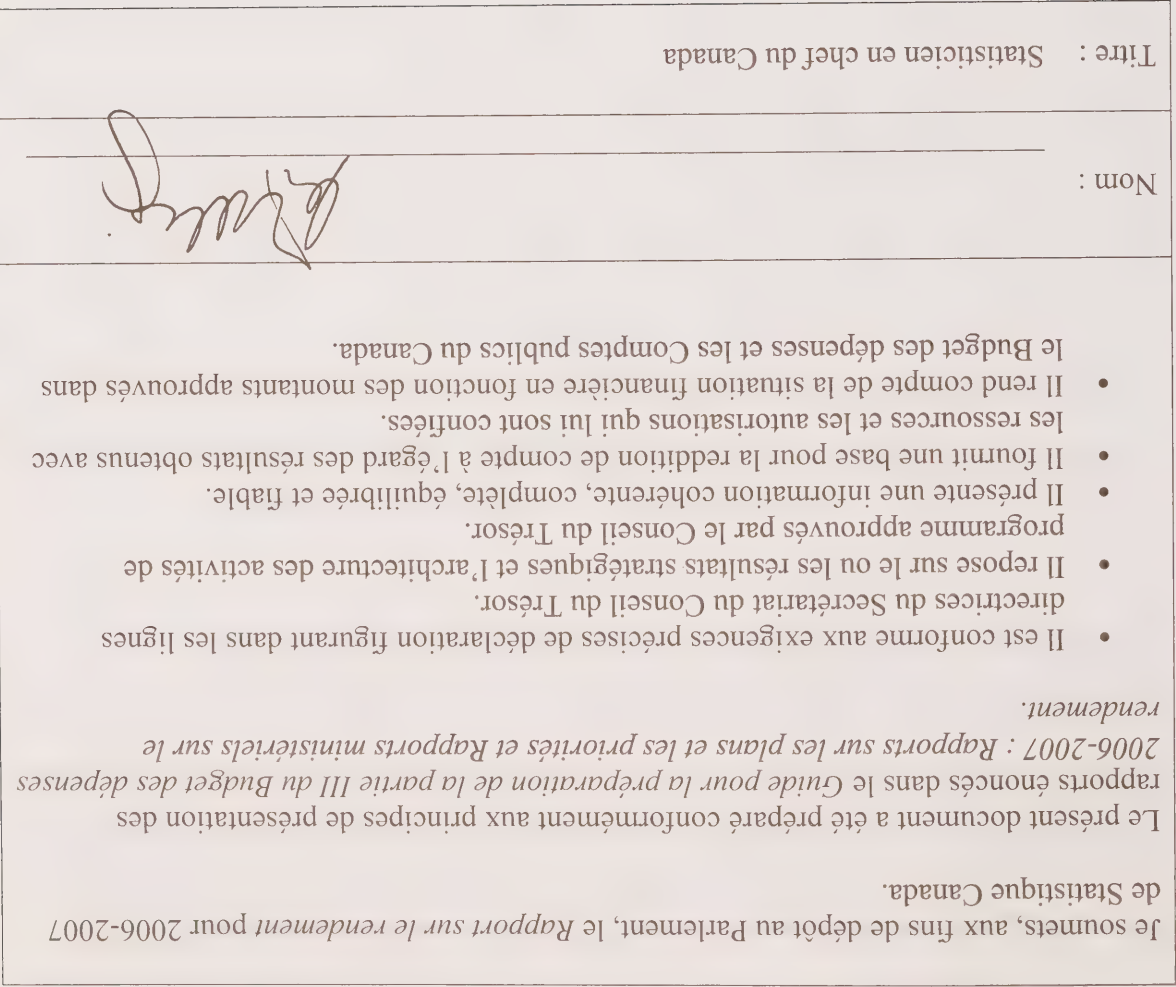 Je soumets, aux fins de dépôt au Parlement, le Rapport sur le rendement pour 2006-2007
de Statistique Canada.
Le présent document a été préparé conformément aux principes de présentation des
rapports énoncés dans le Guide pour la préparation de la partie III du Budget des dépenses
2006-2007 : Rapports sur les plans et les priorités et Rapports ministériels sur le
rendement.
• Il est conforme aux exigences précises de déclaration figurant dans les lignes
directrices du Secrétariat du Conseil du Trésor.
• Il repose sur le ou les résultats stratégiques et l'architecture des activités de
programme approuvés par le Conseil du Trésor.
• Il présente une information cohérente, complète, équilibrée et fiable.
• Il fournit une base pour la reddition de compte à l'égard des résultats obtenus avec
les ressources et les autorisations qui lui sont confiées.
• Il rend compte de la situation financière en fonction des montants approuvés dans
le Budget des dépenses et les Comptes publics du Canada.
Nom :
Titre : Statisticien en chef du Canada